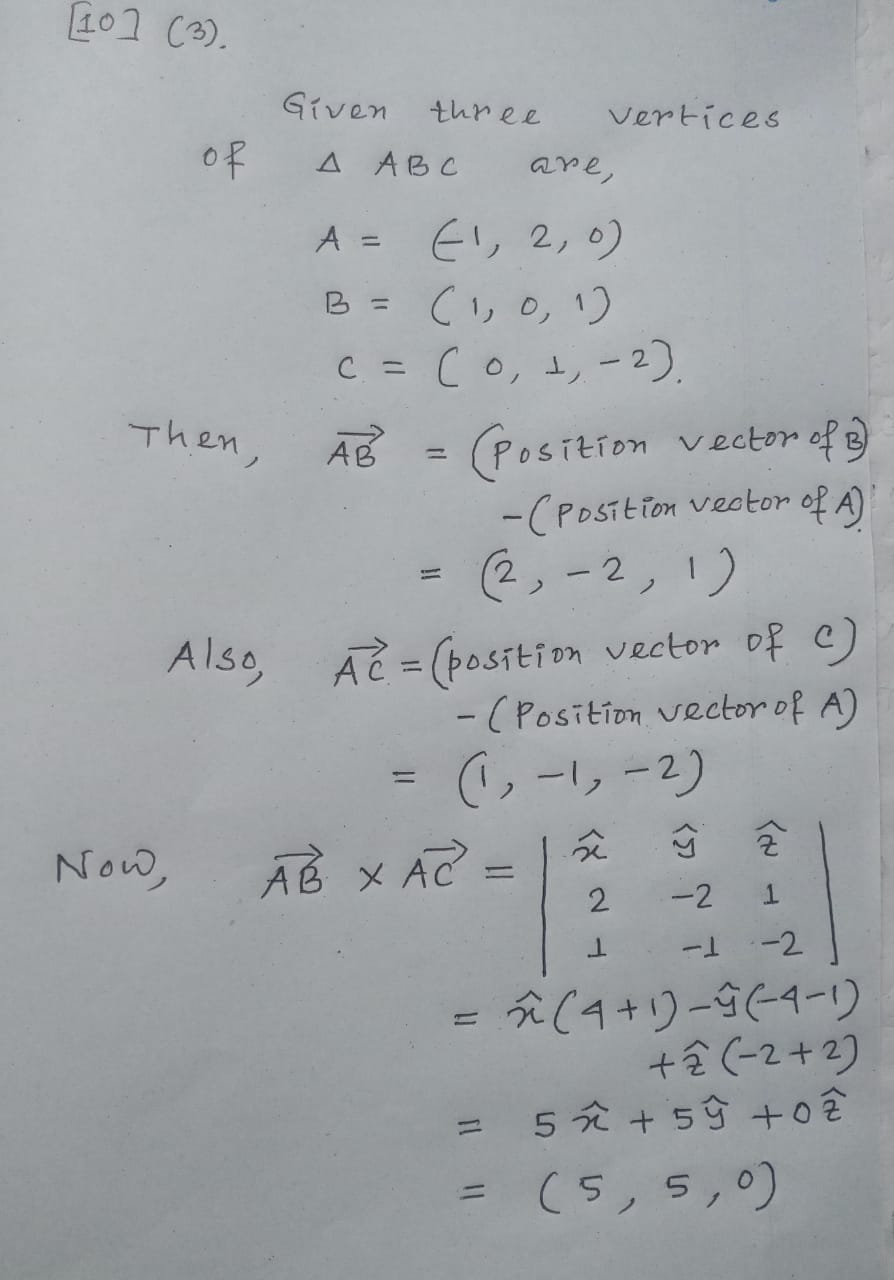 [10] (3).
Given three vertices
of Δ ABC are,
A = (-1, 2, 0)
B = (1, 0, 1)
C = (0, 1, -2).
Then, $\overrightarrow{AB}$ = (Position vector of B)
-(Position vector of A)
= (2, -2, 1)
Also, $\overrightarrow{AC}$ = (position vector of C)
-(Position vector of A)
= (1, -1, -2)
Now, $\overrightarrow{AB}$ × $\overrightarrow{AC}$ = | x̂ ŷ ẑ |
| 2 -2 1 |
| 1 -1 -2 |
= x̂(4+1)-ŷ(-4-1)
+ẑ(-2+2)
= 5x̂ + 5ŷ + 0ẑ
= (5, 5, 0)